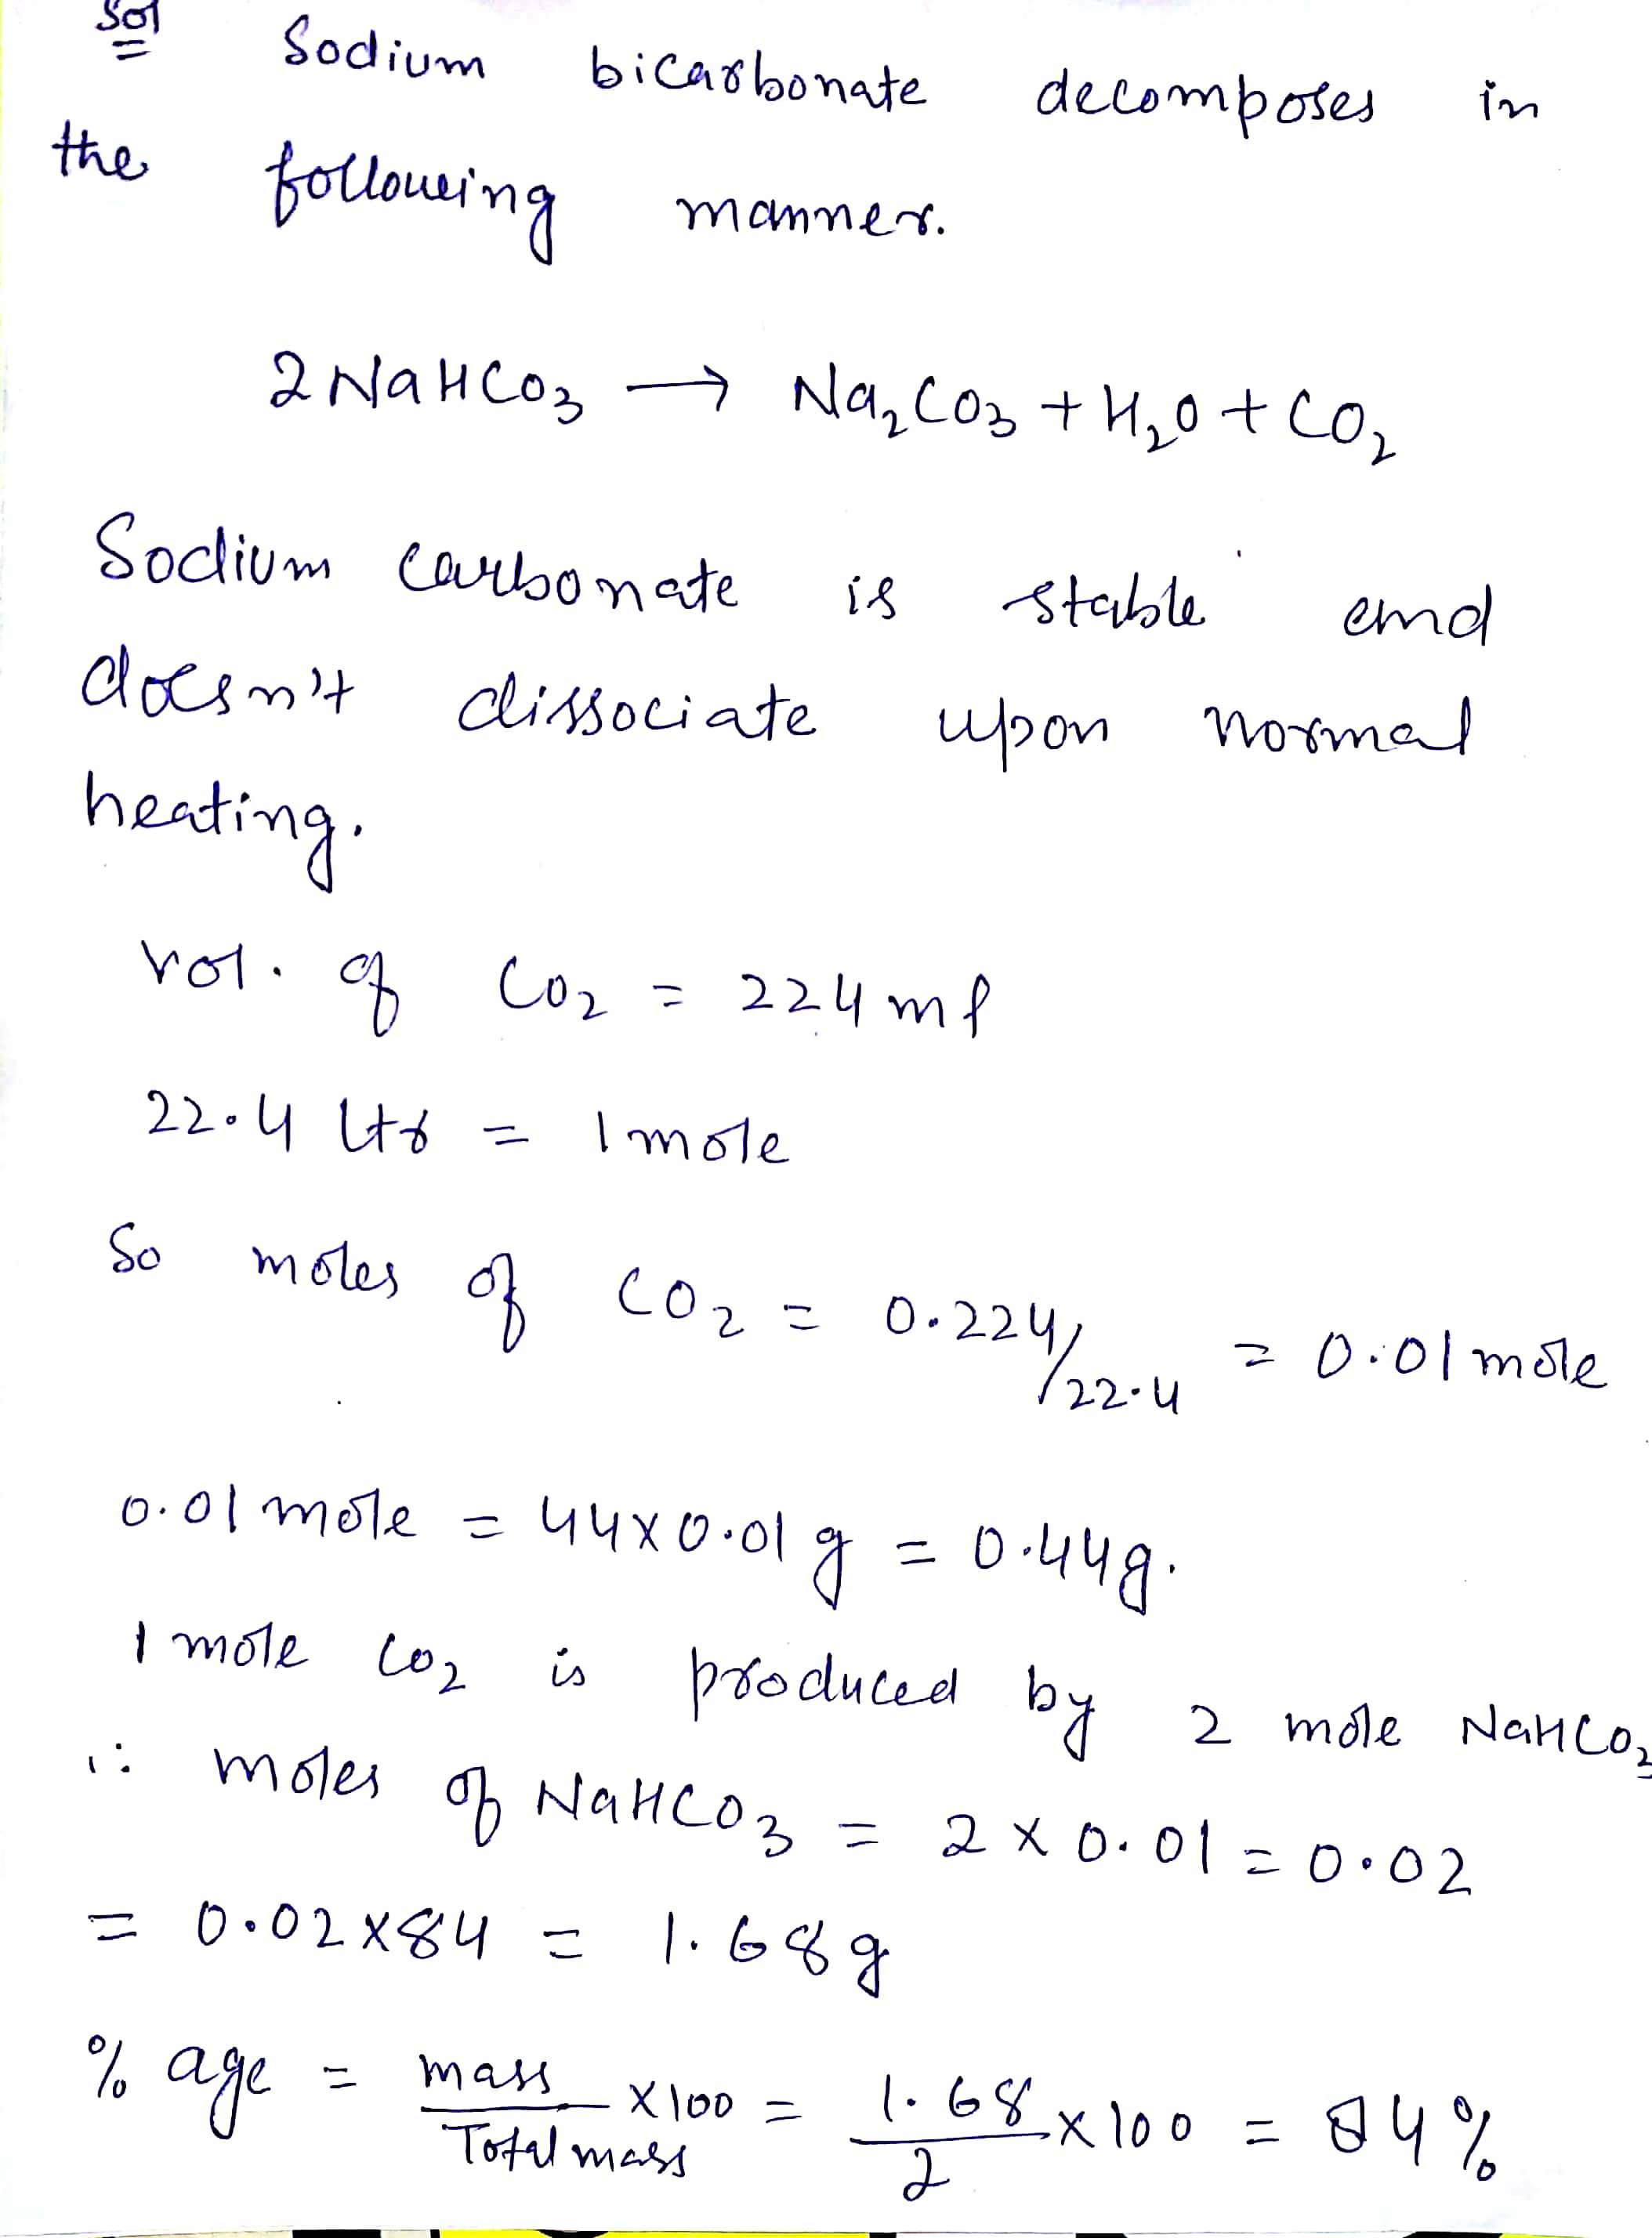 Sol
Sodium bicarbonate decomposes in
the following manner.
2NaHCO₃ → Na₂CO₃ + H₂O + CO₂
Sodium carbonate is stable and
doesn't dissociate upon normal
heating.
Vol. of CO₂ = 224 ml
22.4 ltr = 1 mole
So moles of CO₂ = 0.224/22.4 = 0.01 mole
0.01 mole = 44×0.01 g = 0.44g.
1 mole CO₂ is produced by 2 mole NaHCO₃
∴ moles of NaHCO₃ = 2 × 0.01 = 0.02
= 0.02×84 = 1.68 g
% age = mass/Total mass ×100 = 1.68/2 ×100 = 84%